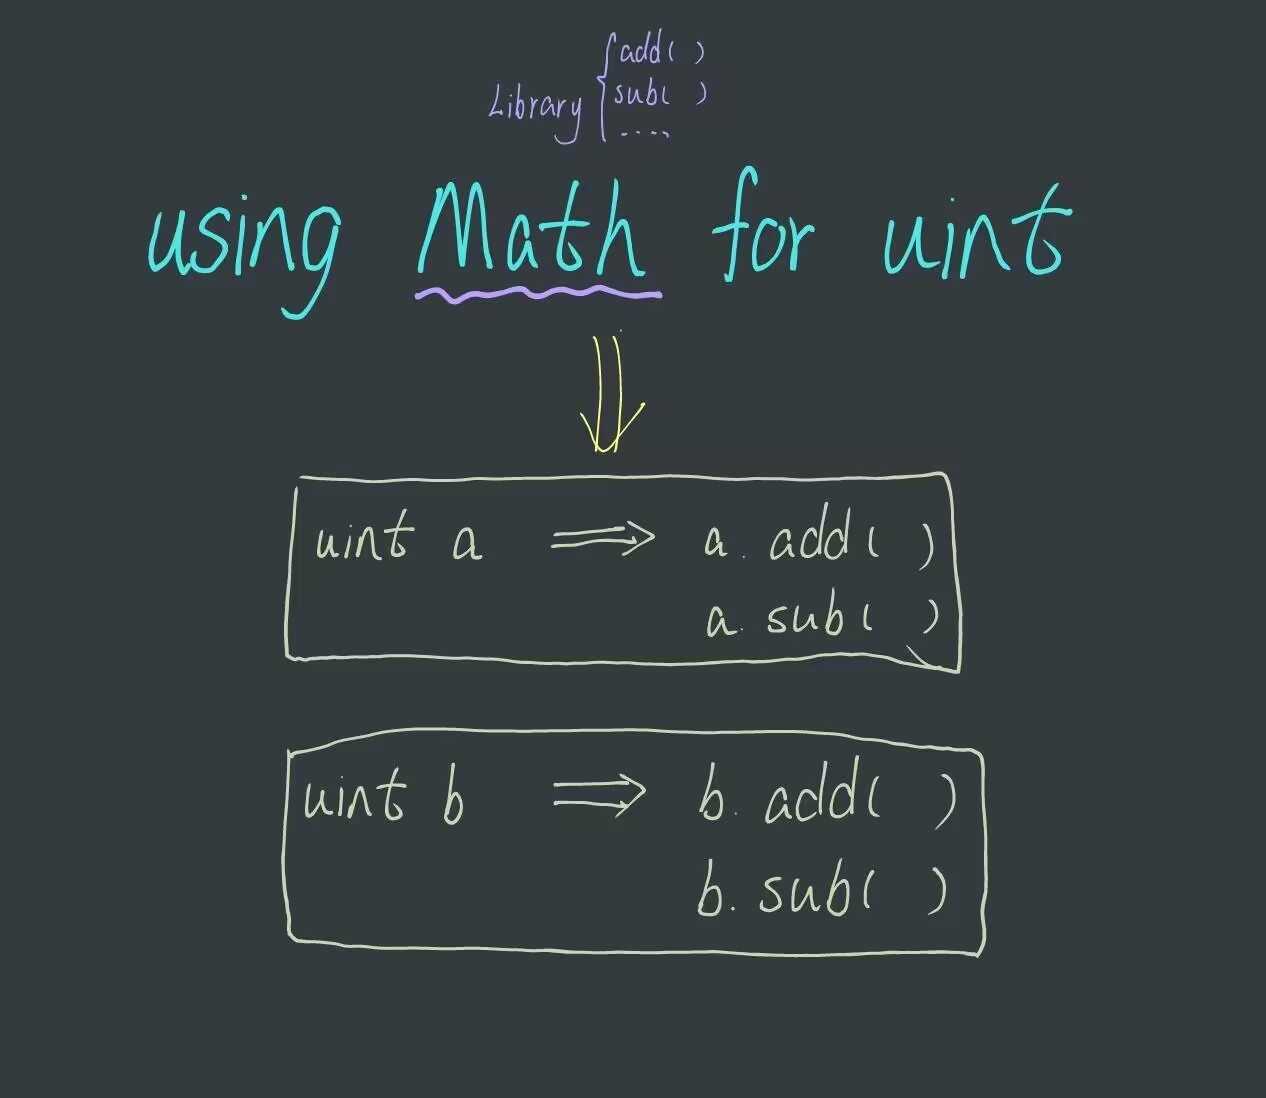 add( )
Library { sub( )
....
using Math for uint
uint a ⇒ a. add( )
a. sub( )
uint b ⇒ b. add( )
b. sub( )